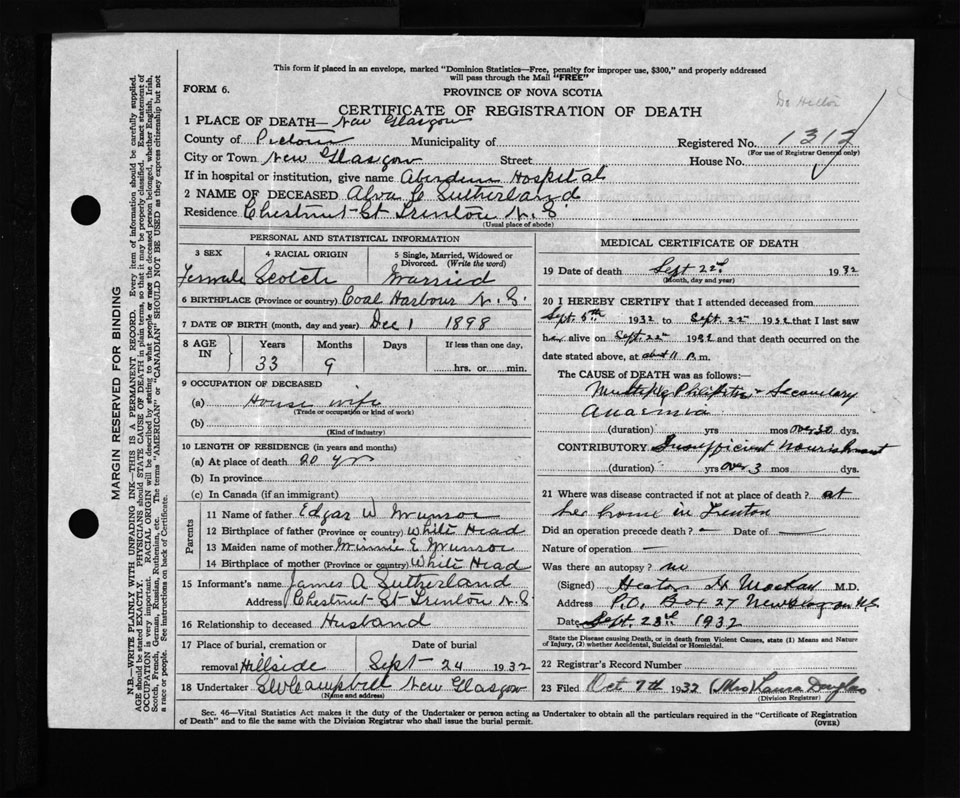 This form if placed in an envelope, marked "Dominion Statistics—Free, penalty for improper use, $300," and properly addressed
will pass through the Mail "FREE"
FORM 6.
PROVINCE OF NOVA SCOTIA
CERTIFICATE OF REGISTRATION OF DEATH
1 PLACE OF DEATH— New Glasgow
County of Pictou Municipality of Registered No. 1317
(For use of Registrar General only)
City or Town New Glasgow Street House No.
If in hospital or institution, give name Aberdeen Hospital
2 NAME OF DECEASED Alva C Sutherland
Residence Chestnut St Trenton N.S.
(Usual place of abode)
MARGIN RESERVED FOR BINDING
N.B.—WRITE PLAINLY WITH UNFADING INK—THIS IS A PERMANENT RECORD. Every item of information should be carefully supplied.
AGE should be stated EXACTLY. PHYSICIANS should STATE CAUSE OF DEATH in plain terms, so that it may be properly classified. Exact statement of
OCCUPATION is very important. RACIAL ORIGIN will be described by stating to what people or race the deceased person belonged, whether English, Irish,
Scotch, French, German, Russian, Ruthenian, etc. The terms "AMERICAN" or "CANADIAN" SHOULD NOT BE USED as they express citizenship but not
a race or people. See instructions on back of Certificate.
PERSONAL AND STATISTICAL INFORMATION
3 SEX 4 RACIAL ORIGIN 5 Single, Married, Widowed or
Divorced. (Write the word)
Female Scotch Married
6 BIRTHPLACE (Province or country) Coal Harbour N.S.
7 DATE OF BIRTH (month, day and year) Dec 1 1898
8 AGE IN Years Months Days If less than one day,
33 9 hrs. or min.
9 OCCUPATION OF DECEASED
(a) House wife
(Trade or occupation or kind of work)
(b)
(Kind of industry)
10 LENGTH OF RESIDENCE (in years and months)
(a) At place of death 20 yr
(b) In province
(c) In Canada (if an immigrant)
Parents
11 Name of father Edgar W Munroe
12 Birthplace of father (Province or country) White Head
13 Maiden name of mother Minnie E Munroe
14 Birthplace of mother (Province or country) White Head
15 Informant's name James A Sutherland
Address Chestnut St Trenton N.S
16 Relationship to deceased Husband
17 Place of burial, cremation or Date of burial
removal Hillside Sept 24 1932
18 Undertaker Campbell New Glasgow
(Name and address)
MEDICAL CERTIFICATE OF DEATH
19 Date of death Sept 22d 1932
(Month, day and year)
20 I HEREBY CERTIFY that I attended deceased from
Sept. 5th 1932 to Sept. 22nd 1932 that I last saw
her alive on Sept. 22nd 1932 and that death occurred on the
date stated above, at about 11 P.m.
The CAUSE of DEATH was as follows:—
Multiple Secondary
Anaemia
(duration) yrs mos over 30 dys.
CONTRIBUTORY Insufficient Nourishment
(duration) yrs over 3 mos dys.
21 Where was disease contracted if not at place of death? at
her home in Trenton
Did an operation precede death? — Date of —
Nature of operation —
Was there an autopsy? no
(Signed) H. MacKay M.D.
Address P.O. Box 27 New Glasgow N.S.
Date Sept. 23rd 1932
State the Disease causing Death, or in death from Violent Causes, state (1) Means and Nature
of Injury, (2) whether Accidental, Suicidal or Homicidal.
22 Registrar's Record Number
23 Filed Oct 7th 1932 (Mrs) Laura Douglas
(Division Registrar)
Sec. 46—Vital Statistics Act makes it the duty of the Undertaker or person acting as Undertaker to obtain all the particulars required in the "Certificate of Registration
of Death" and to file the same with the Division Registrar who shall issue the burial permit.
(OVER)